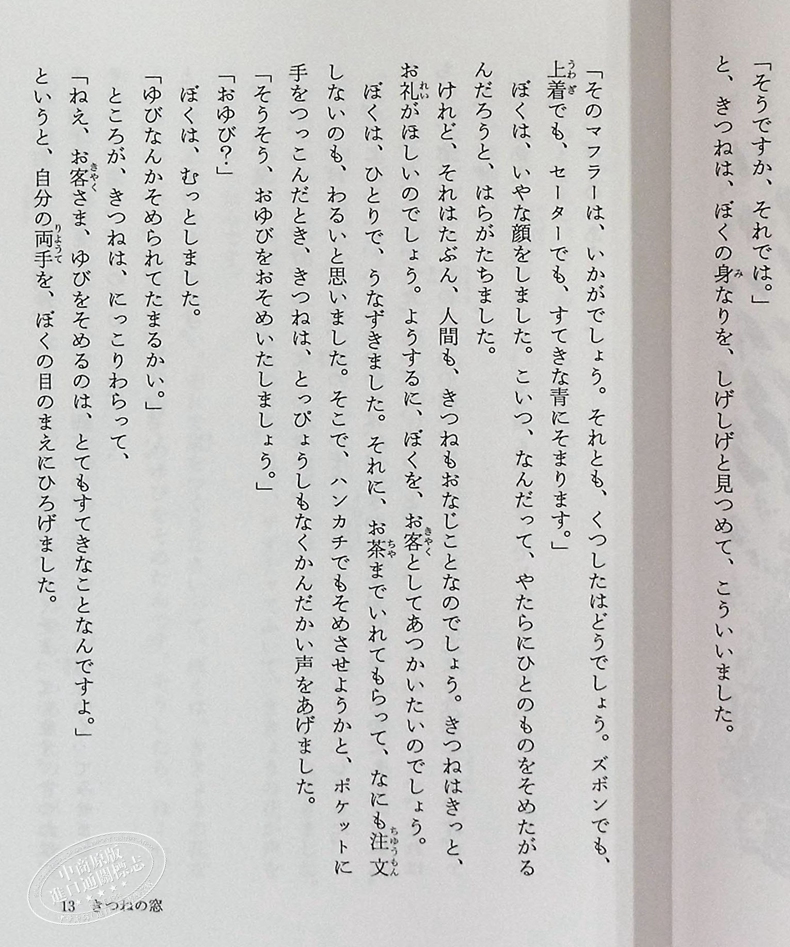 「そうですか、それでは。」
と、きつねは、ぼくの身なりを、しげしげと見つめて、こういいました。
「そのマフラーは、いかがでしょう。それとも、くつしたはどうでしょう。ズボンでも、
上着でも、セーターでも、すてきな青にそまります。」
ぼくは、いやな顔をしました。こいつ、なんだって、やたらにひとのものをそめたがる
んだろうと、はらがたちました。
けれど、それはたぶん、人間も、きつねもおなじことなのでしょう。きつねはきっと、
お礼がほしいのでしょう。ようするに、ぼくを、お客としてあつかいたいのでしょう。
ぼくは、ひとりで、うなずきました。それに、お茶までいれてもらって、なにも注文
しないのも、わるいと思いました。そこで、ハンカチでもそめさせようかと、ポケットに
手をつっこんだとき、きつねは、とっぴょうしもなくかんだかい声をあげました。
「そうそう、おゆびをおそめいたしましょう。」
「おゆび?」
ぼくは、むっとしました。
「ゆびなんかそめられてたまるかい。」
ところが、きつねは、にっこりわらって、
「ねえ、お客さま、ゆびをそめるのは、とてもすてきなことなんですよ。」
というと、自分の両手を、ぼくの目のまえにひろげました。
13 きつねの窓
中商原版
进口自通關標志